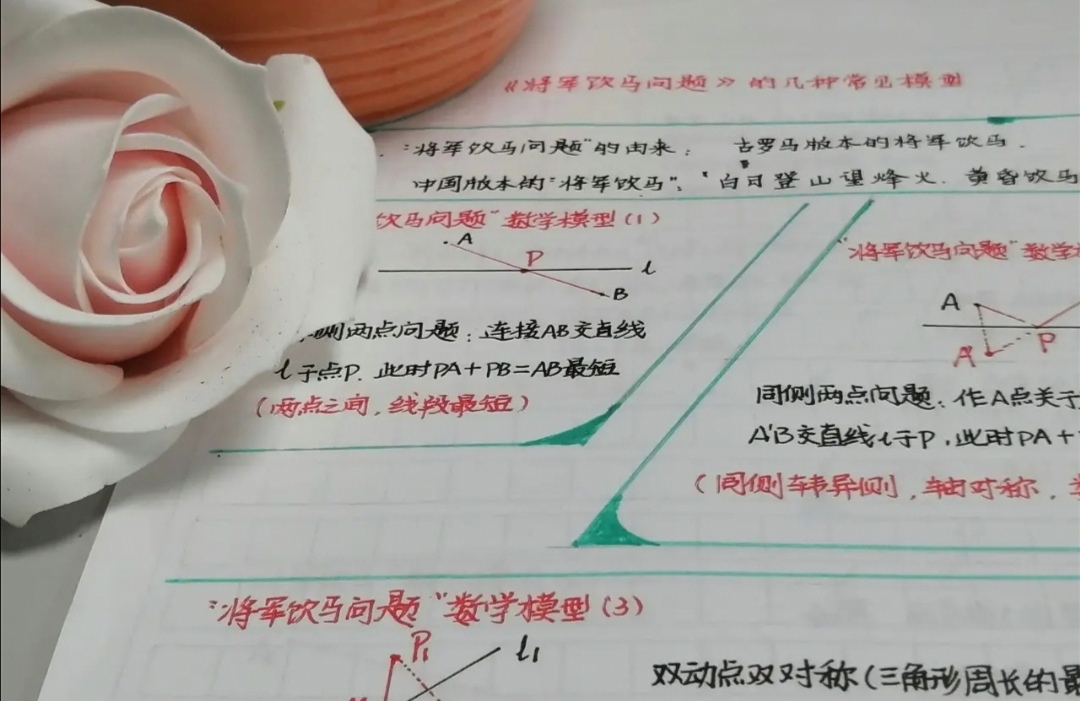 《将军饮马问题》的几种常见模型
"将军饮马问题"的由来: 古罗马版本的将军饮马.
中国版本的"将军饮马": "白日登山望烽火. 黄昏饮马
饮马问题"数学模型(1)
A
P
l
B
侧两点问题: 连接AB交直线
l于点P. 此时PA+PB=AB最短
(两点之间, 线段最短)
"将军饮马问题"数学
A
A'
P
同侧两点问题: 作A点关于
A'B交直线l于P, 此时PA+
(同侧转异侧, 轴对称,
"将军饮马问题"数学模型(3)
P₁
l₁
双动点双对称(三角形周长的最